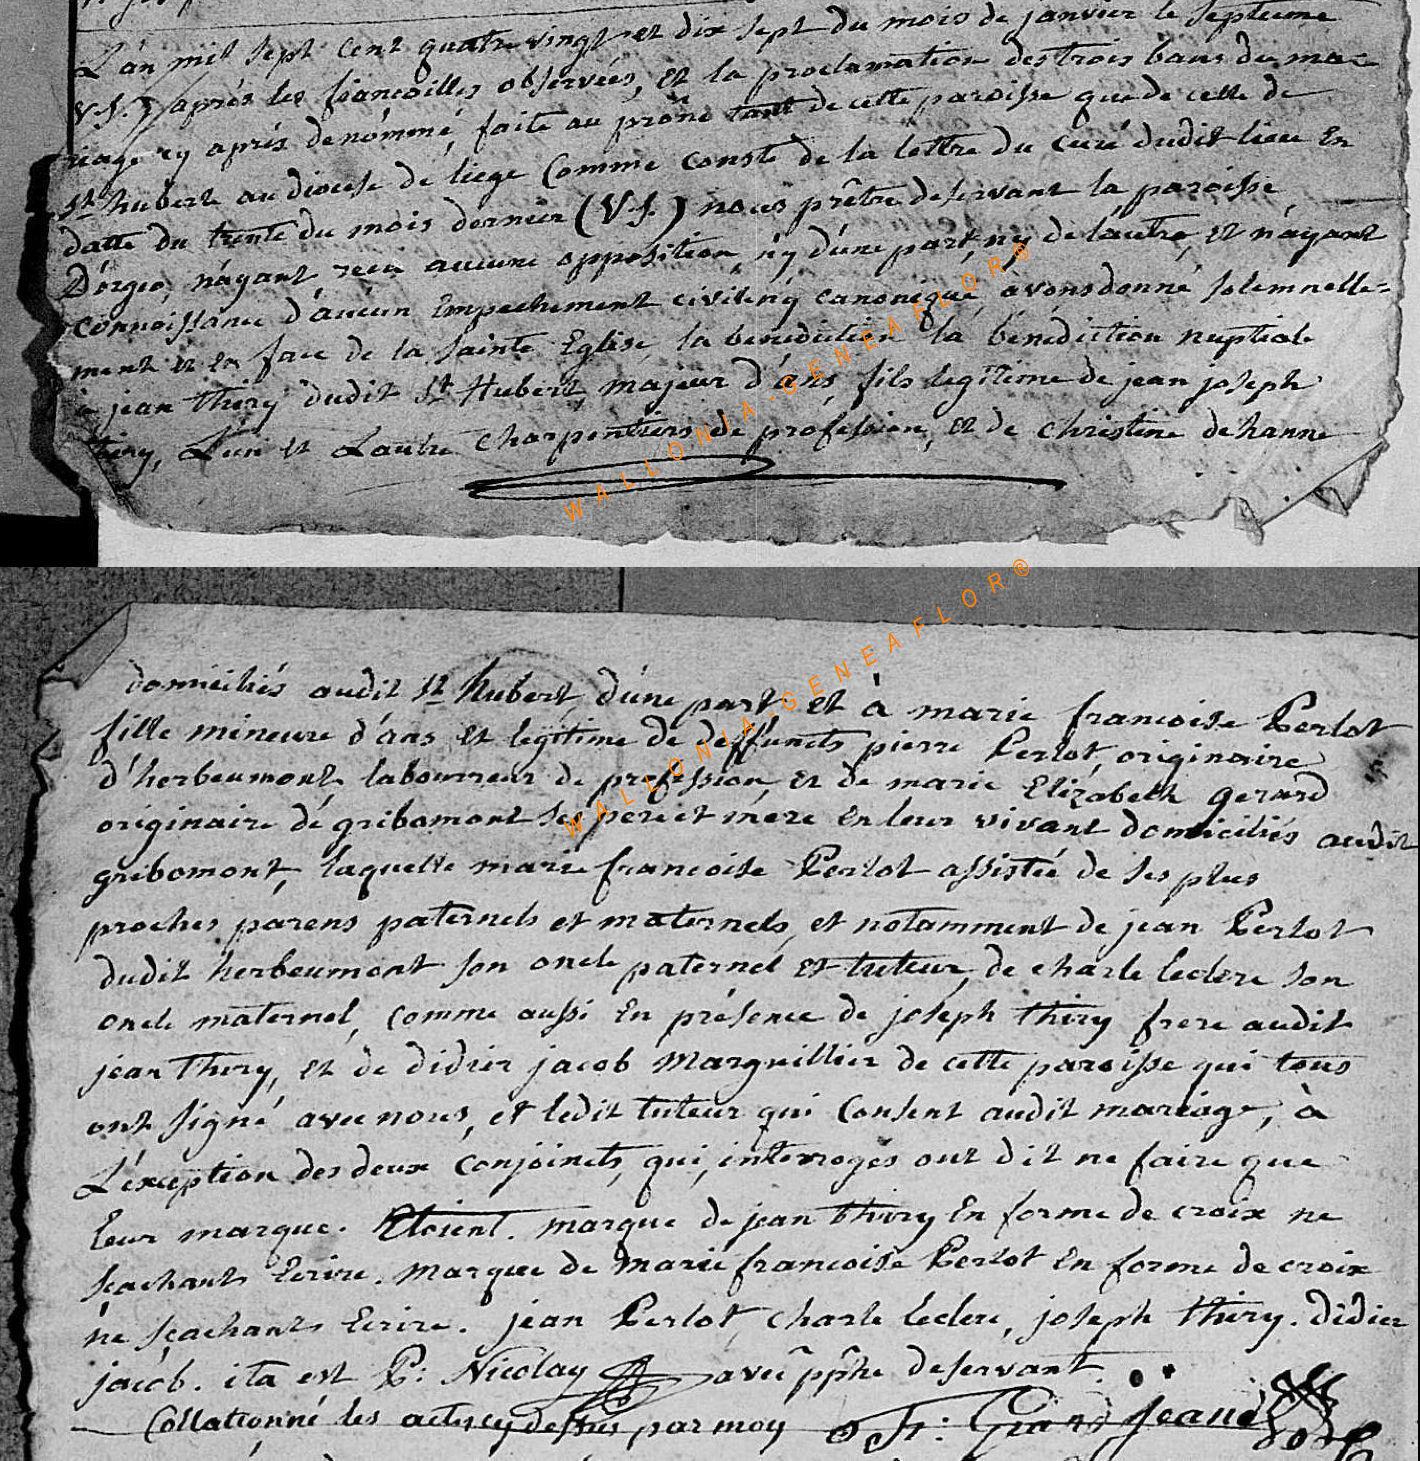 L'an mil sept cent quatre vingt et dix sept du mois de janvier le septieme
V.S. après les fiancailles observées, et la proclamation des trois bans du ma-
riage cy aprés denommé, faite au prône tant de cette paroisse que de celle de
St hubert au diocese de liege Comme conste de la lettre du curé dudit lieu En
datte du trente du mois dernier (V.S.) nous prêtre deservant la paroisse
D'orgeo, n'ayant recu aucune opposition n'y d'une part, ny de l'autre, et n'ayant
connoissance d'aucun Empechement civil n'y canonique avons donné solemnelle=
ment et en face de la sainte Eglise la benediction la bénédiction nuptiale
a jean thiry dudit St Hubert, majeur d'ans, fils legitime de jean joseph
thiry, L'un et L'autre charpentiers de profession, et de christine dehanne
domiciliés audit St hubert d'une part et à marie francoise Perlot
fille mineure d'ans et legitime de deffuncts pierre Perlot, originaire
d'herbeumont laboureur de profession, et de marie Elizabeth gerard
originaire de gribomont ses pere et mere En leur vivant domiciliés audit
gribomont, laquelle marie francoise Perlot assistée de ses plus
proches parens paternels et maternels, et notamment de jean Perlot
dudit herbeumont son oncle paternel et tuteur, de charle leclere son
oncle maternel, comme aussi En présence de joseph thiry frere audit
jean thiry, et de didier jacob Marguillier de cette paroisse qui tous
ont signé avec nous, et ledit tuteur qui Consent audit mariage, à
L'exception des deux conjoincts, qui, interrogés ont dit ne faire que
leur marque. Etoient. marque de jean thiry En forme de croix ne
scachant Ecrire. marque de Marie francoise Perlot En forme de croix
ne scachant Ecrire. jean Perlot, charle leclere, joseph thiry. didier
jacob. ita est P: Nicolay avec pphe deservant.
Collationné les actes cy dessus par moy Fr: Grand Jean
WALLONIA-GENEAFLOR®
WALLONIA-GENEAFLOR®